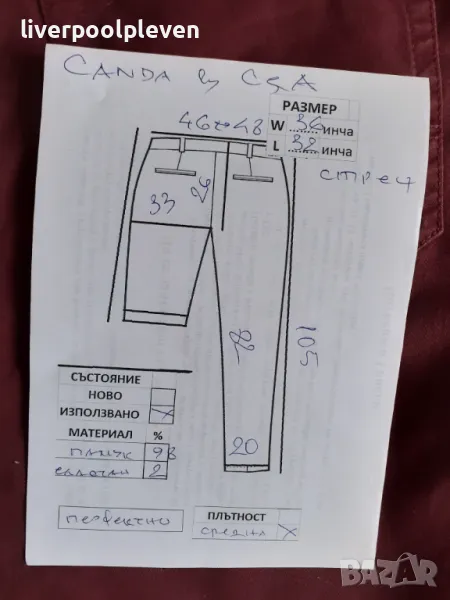 liverpoolpleven
CANDA by C&A
РАЗМЕР
W 36 инча
L 32 инча
46↔48
стреч
33
26
105
20
СЪСТОЯНИЕ
НОВО
ИЗПОЛЗВАНО X
МАТЕРИАЛ %
памук 98
еластан 2
перфектно
ПЛЪТНОСТ
средна X
BAZAR